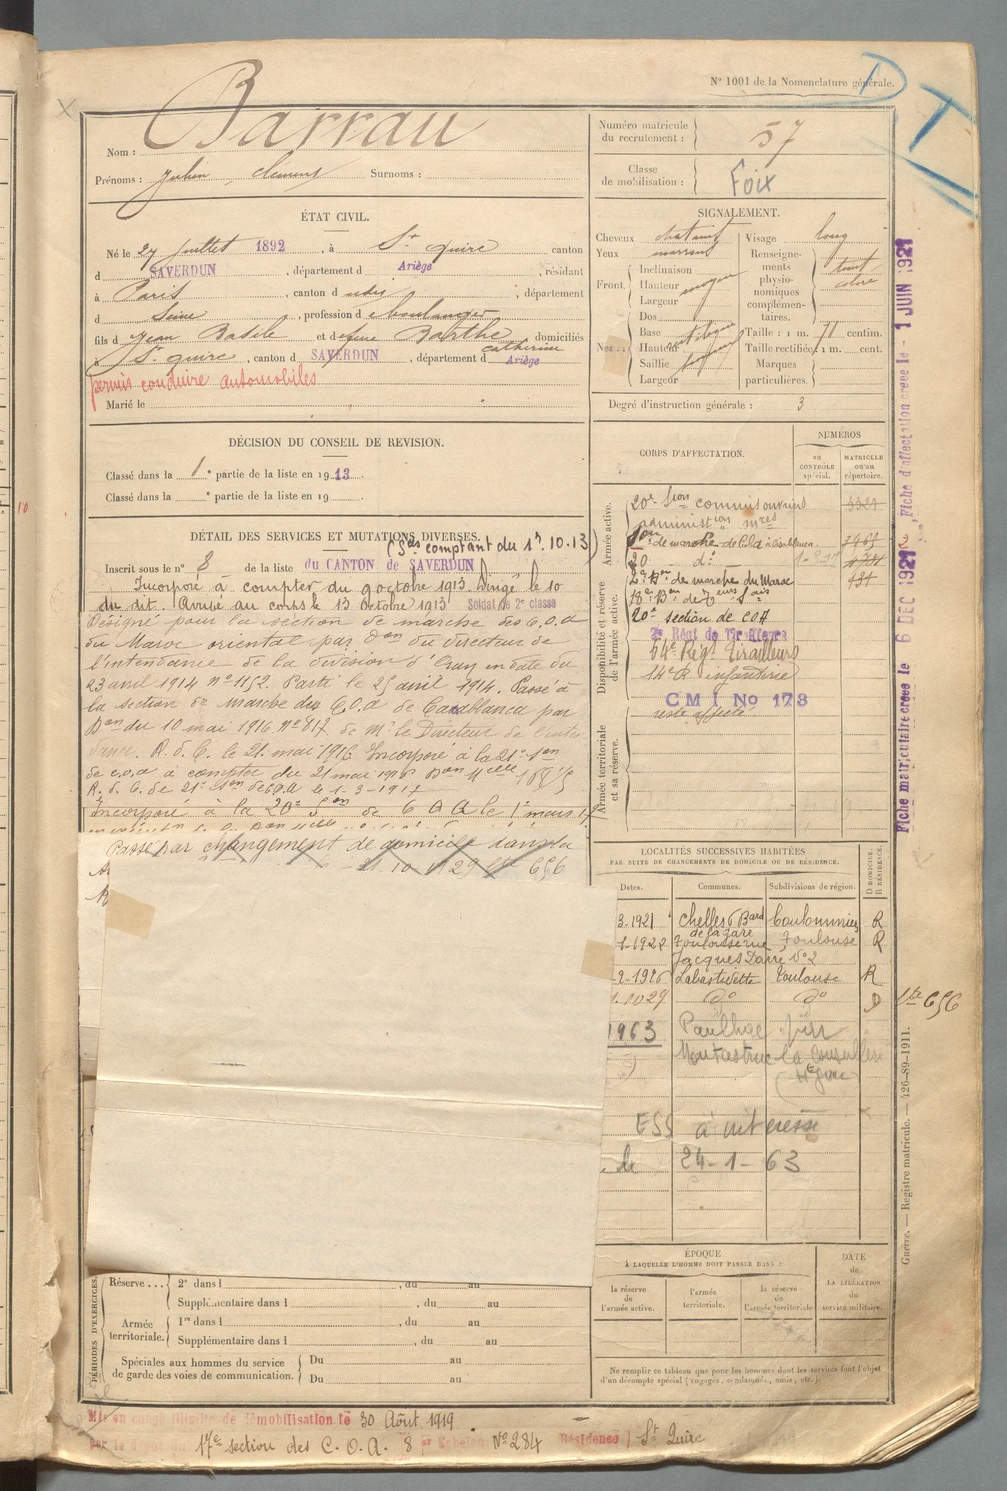 N° 1001 de la Nomenclature générale.
D T
Nom : Barrau
Prénoms : Julien, Clément Surnoms :
Numéro matricule du recrutement : 57
Classe de mobilisation : Foix
ÉTAT CIVIL.
Né le 27 juillet 1892, à St Quirc, canton
d SAVERDUN, département d Ariège, résidant
à Paris, canton d udes, département
d Seine, profession d boulanger
fils d Jean Basile et d Barthe Catherine domiciliés
à St Quirc, canton d SAVERDUN, département d Ariège
permis conduire automobiles
Marié le
SIGNALEMENT.
Cheveux chatains
Yeux marrons
Front. Inclinaison
Hauteur moyen
Largeur
Nez. Dos
Base
Hauteur
Saillie
Largeur
Visage long
Renseignements physionomiques complémentaires. teint
Taille : 1 m. 71 centim.
Taille rectifiée : 1 m. cent.
Marques particulières.
Degré d'instruction générale : 3
DÉCISION DU CONSEIL DE REVISION.
Classé dans la 1e partie de la liste en 1913
Classé dans la e partie de la liste en 19
CORPS D'AFFECTATION.
NUMÉROS
AU CONTRÔLE spécial.
MATRICULE OU AU répertoire.
Armée active.
20e Son commis ouvriers 3321
administon
Son de marche de Cola à Casablanca 2465
20 do
2e Bon de marche du Maroc 434
Disponibilité et réserve de l'armée active.
18e Bon de
20e section de COA
2e Régt de Tirailleurs
64e Régt Tirailleurs
14e R. infanterie
CMI No 173
reste affecté
Armée territoriale et sa réserve.
DÉTAIL DES SERVICES ET MUTATIONS DIVERSES.
(Ses comptant du 1r. 10.13)
Inscrit sous le n° 8 de la liste du CANTON de SAVERDUN
Incorporé à compter du 9 octobre 1913. Dirigé le 10
du dit. Arrivé au corps le 13 octobre 1913 Soldat de 2e classe
Désigné pour la section de marche des C.O.A
du Maroc oriental par Don du directeur de
l'intendance de la division d'Oran en date du
23 avril 1914 n° 1152. Parti le 25 avril 1914. Passé à
la section de Marche des C.O.A de Casablanca par
Don du 10 mai 1916 N° 817 de Mr le Directeur de l'Inten
dance. R. d. C. le 21 mai 1916 Incorporé à la 21e Son
de C.O.A à compter du 21 mai 1916
R. d. C. de 21e Son de C.O.A le 1-3-1917
Incorporé à la 20e Son de C O A le 1er mars 17
Passé par changement de domicile dans la
10 1929 656
LOCALITÉS SUCCESSIVES HABITÉES
PAR SUITE DE CHANGEMENTS DE DOMICILE OU DE RÉSIDENCE.
Dates. Communes. Subdivisions de région. D DOMICILE. R RÉSIDENCE.
3-1921 Chelles 6 Bard de la gare Coulommiers R
-1-1922 Toulouse rue Jacques Darre N° 2 Toulouse R
-9-1926 Labastidette Toulouse R
1.1029 do do D
1963 Paulhac
Montastruc la Conseillère
(Hte Gne)
ESS à intéressé
le 24-1-63
ÉPOQUE
À LAQUELLE L'HOMME DOIT PASSER DANS :
la réserve de l'armée active.
l'armée territoriale.
la réserve de l'armée territoriale
DATE de LA LIBÉRATION du service militaire.
Ne remplir ce tableau que pour les hommes dont les services font l'objet d'un décompte spécial (engagés, condamnés, omis, etc.).
PÉRIODES D'EXERCICES.
Réserve ... 2e dans l , du au
Supplémentaire dans l , du au
Armée territoriale. 1re dans l , du au
Supplémentaire dans l , du au
Spéciales aux hommes du service de garde des voies de communication. Du au
Du au
Mis en congé illimité de démobilisation le 30 Août 1919
par le dépôt du 17e section des C. O. A. 8 e Echelon N° 284 Résidence St Quirc
Fiche matriculaire créée le 6 DEC 1921
Fiche d'affectation créée le 1 JUIN 1921
656
Guerre. — Registre matricule. — 426-89-1911.